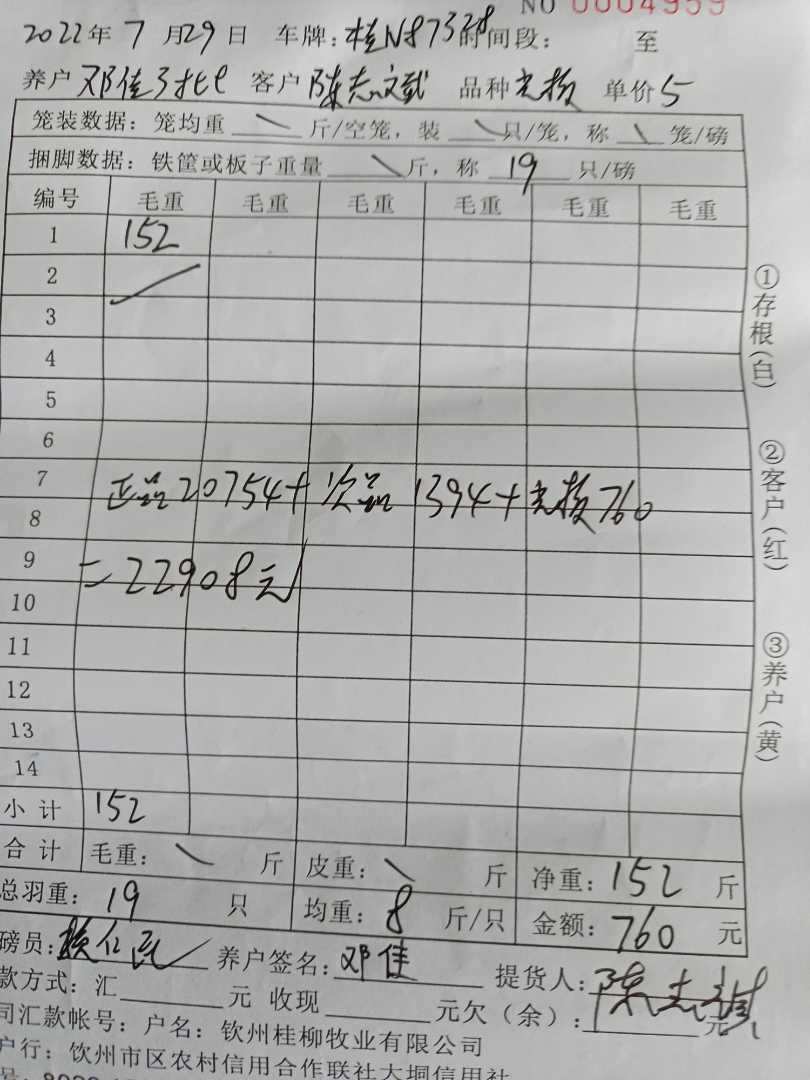 NO 0004959
2022年 7 月29日 车牌:桂N87328时间段: 至
养户 邓佳 客户 陈志斌 品种 单价5
笼装数据:笼均重 \ 斤/空笼,装 \ 只/笼,称 \ 笼/磅
捆脚数据:铁筐或板子重量 \ 斤,称 19 只/磅
编号 毛重 毛重 毛重 毛重 毛重 毛重
1 152
2
3
4
5
6
7
正品20754+次品1394+ 760
8
9
=22908元
10
11
12
13
14
小计 152
合计 毛重: \ 斤 皮重: \ 斤 净重:152 斤
总羽重: 19 只 均重: 8 斤/只 金额:760 元
磅员: 养户签名:邓佳 提货人:陈志斌
款方式:汇 元 收现 元欠(余): 元
司汇款帐号:户名:钦州桂柳牧业有限公司
户行:钦州市区农村信用合作联社大垌信用社
①存根(白)
②客户(红)
③养户(黄)